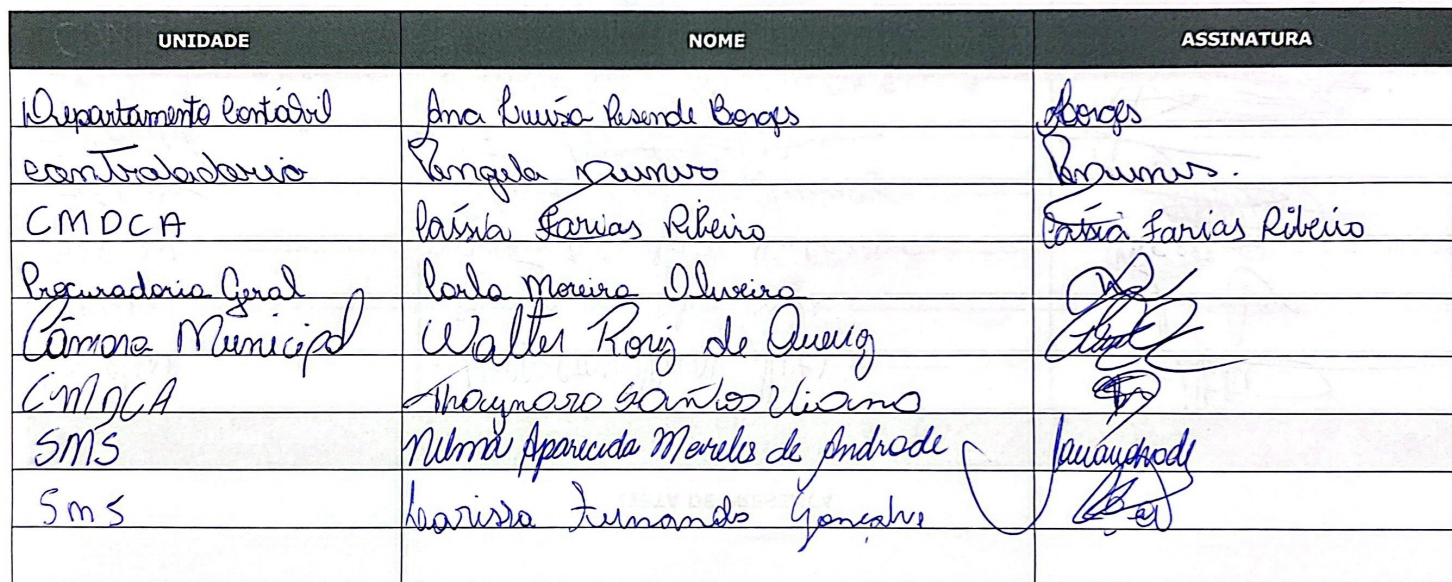 UNIDADE NOME ASSINATURA
Departamento Contábil Ana Luísa Resende Borges Borges
controladoria Nunes
CMDCA Farias Ribeiro Farias Ribeiro
Procuradoria Geral Carla Moreira Oliveira
Câmara Municipal Walter Roriz de Queiroz
CMDCA Thaynara Santos Viana
SMS Nilma Aparecida Meireles de Andrade
SMS Larissa Fernanda Gonçalves